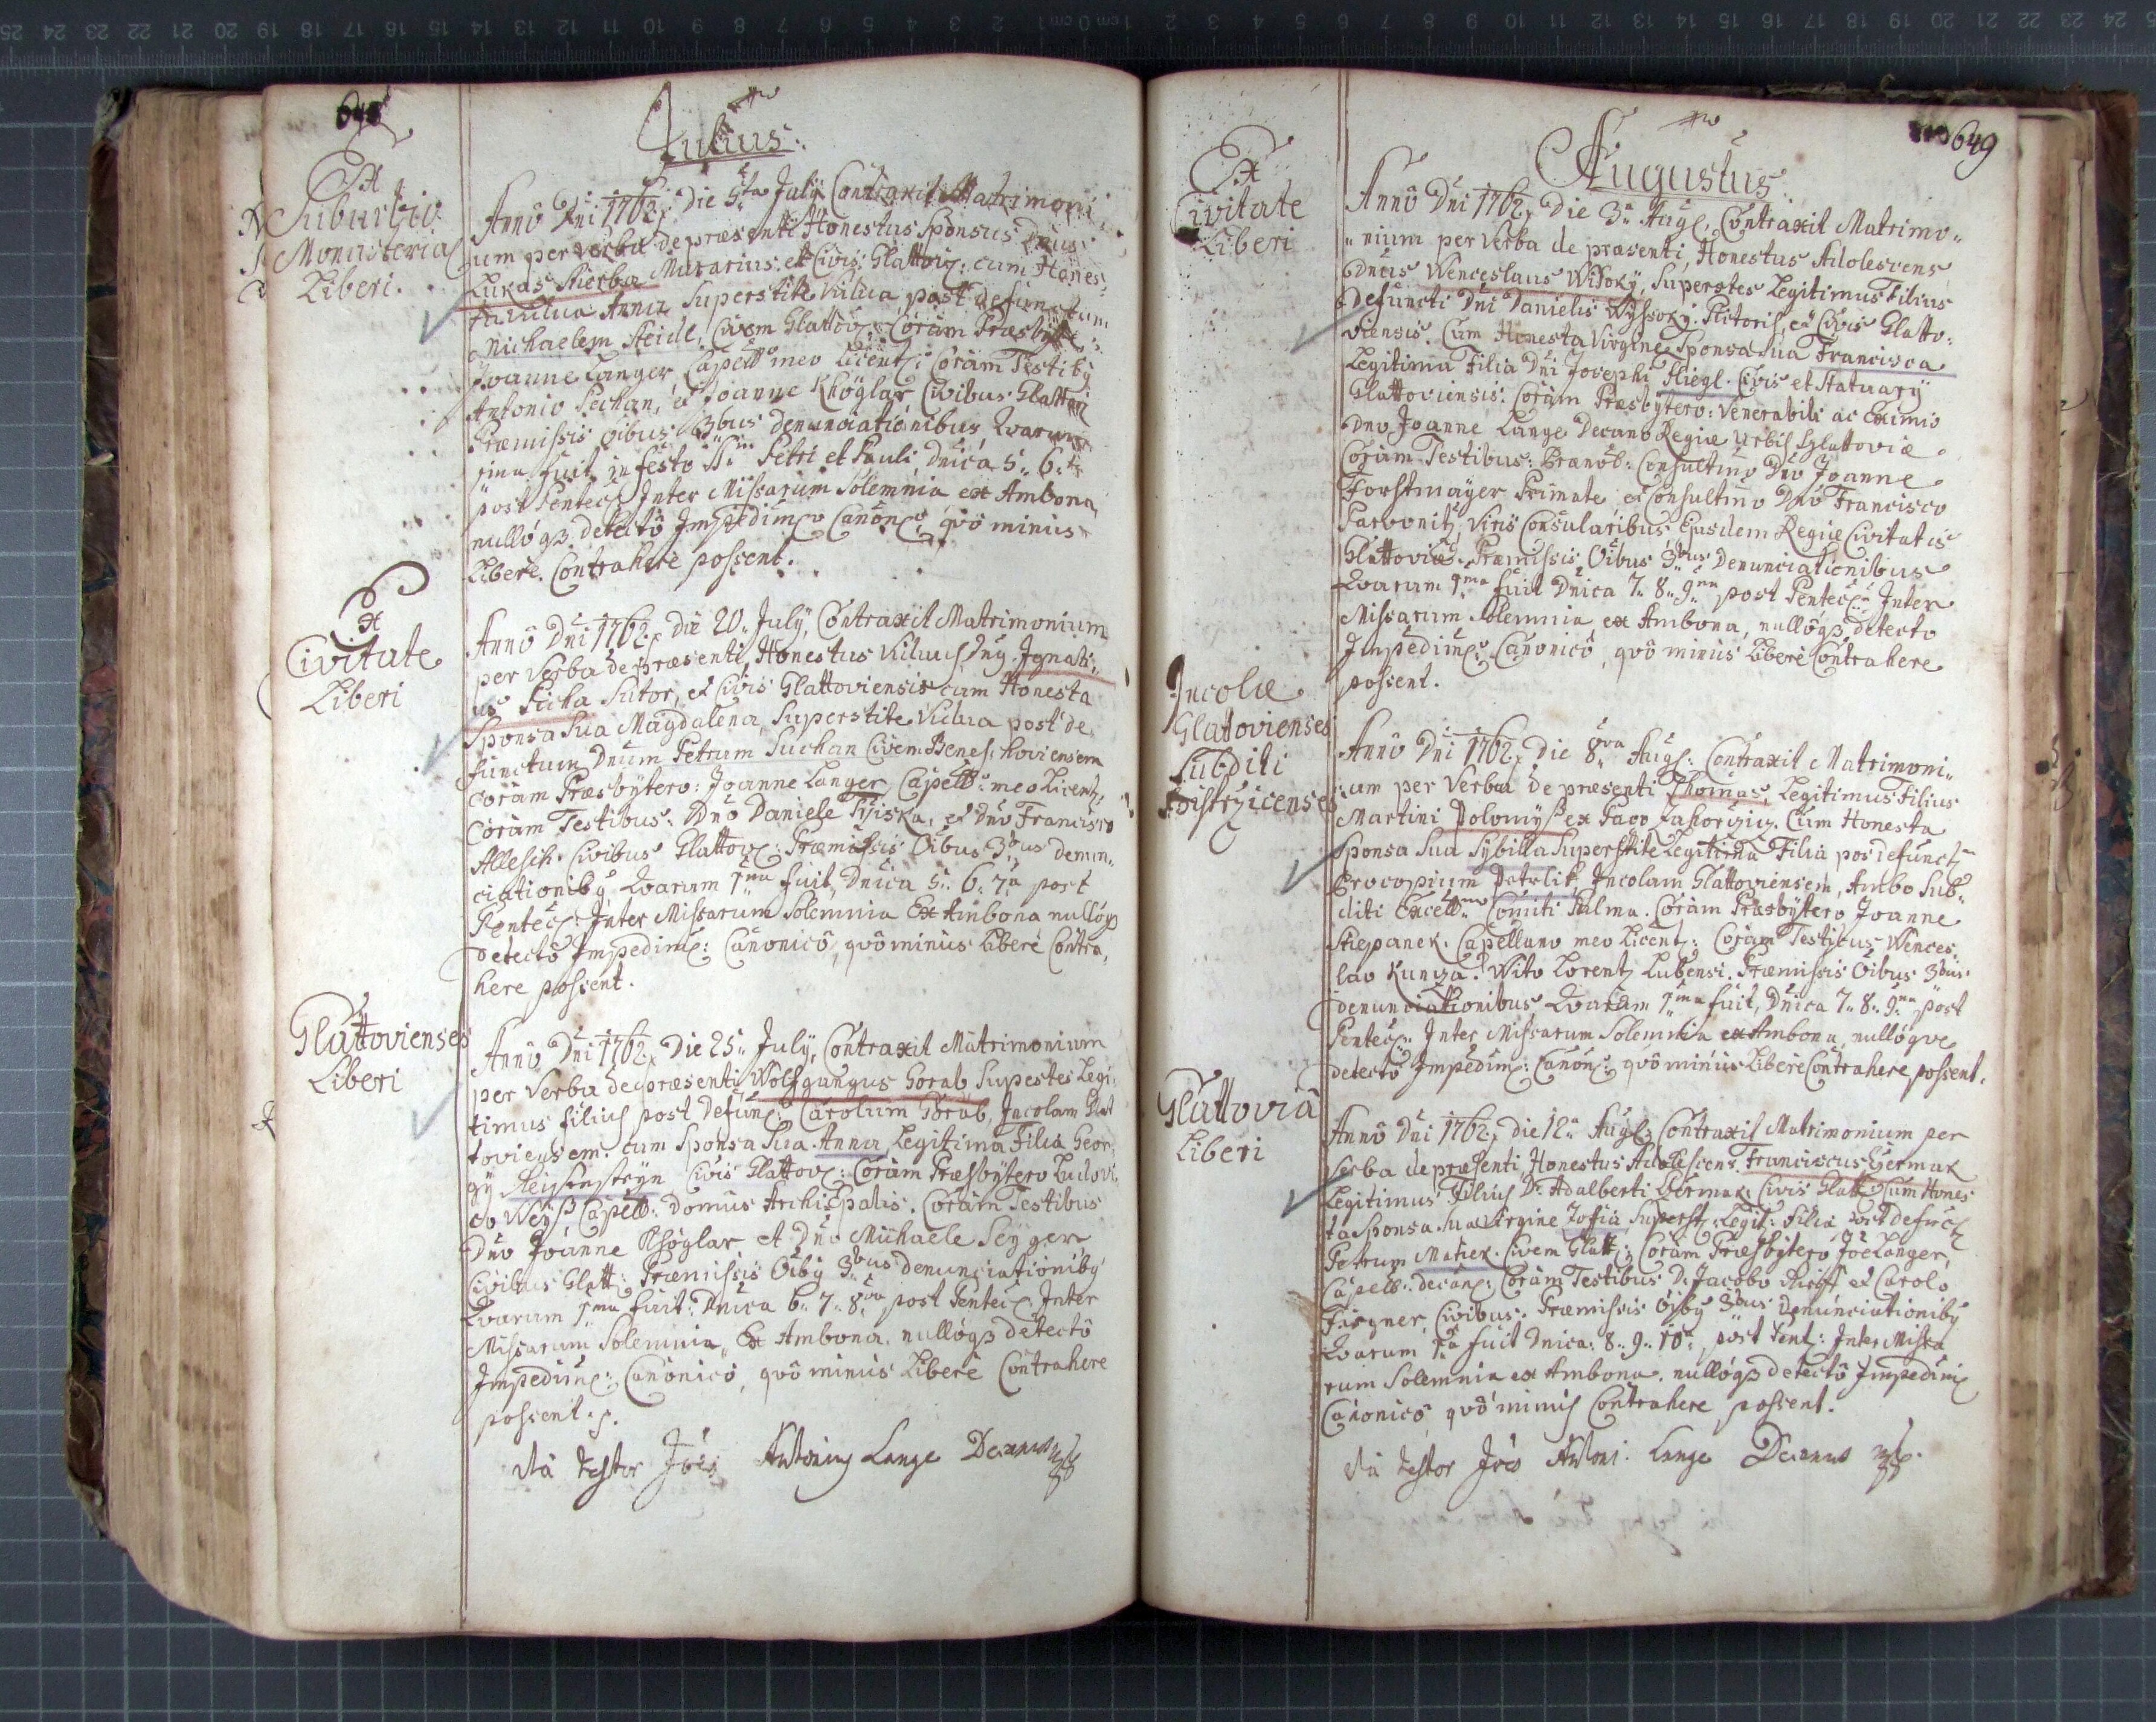 648
Julius.
Ex
Suburbio
Monasteria
Liberi.
Annô Dni 1762. Die July Contraxit Matrimoni
um per verba de præsenti Honestus Sponsus Dnus
Lukas Murarius et Civis Glattov: cum Hones:
Anna Superstite Vidua post defunctum
Michaelem Steidl, Civem Glattov: Coràm Præsbyte:
Joanne Langer Capell: meo Licent: Coràm Testiby
Antonio Pechan, et Joanne Khöglar Civibus Glattov
Præmissis oibus 3bus denunciationibus Quarum
fuit in festo SS. Petri et Pauli Dnica 5. 6.
post Pentec: Inter Missarum Solemnia ex Ambona
nullóq3 detectô Impedim: Canon: quô minus
Liberè Contrahere possent.
Ex
Civitate
Liberi
Annô Dni 1762. die 20. July, Contraxit Matrimonium
per Verba de præsenti, Honestus Viduus Dnus Ignati:
us Picka Sutor, et Civis Glattoviensis cum Honesta
Sponsa Sua Magdalena, Superstite Vidua post de,
functum Dnum Petrum Suchan Civem Benes: hoviensem
Coràm Præsbytero: Joanne Langer Capell: meo Licent:
Coràm Testibus: Dnô Daniele et Dnô Francisco
Allesch Civibus Glattov: Præmissis Oibus 3bus denun,
ciationiby Quarum 1ma fuit, Dnica 5. 6. 7a post
Pentec: Inter Missarum Solemnia Ex Ambona nullóq3
detectô Impedim: Canonicô, quô minùs Liberè Contra,
here possent.
Glattovienses
Liberi
Annô Dni 1762. Die 25. July, Contraxit Matrimonium
per Verba de præsenti Wolfgangus Gorab Supestes Legi:
timus filius post Defunc: Carolum Gorab, Incolam Glat
toviensem. cum Sponsa Sua Anna Legitima Filia Geor,
gÿ Civis Glattov: Coràm Præsbytero Ludovi,
co Weyß, Capell: Domus Archi Epalis. Coràm Testibus
Dnô Joanne Khöglar et Dnô Michaele Seyger
Civibus Glatt: Præmissis Oiby 3bus denunciationiby
Quarum 1ma fuit: Dnica 6. 7. 8va post Pentec: Inter
Missarum Solemnia, Ex Ambona. nullóq3 detectô
Impedim: Canonicô, quô minùs Liberè Contrahere
possent.
Ità testor Jóês Antonius Lange Decanus
649
Augustus
Ex
Civitate
Liberi
Annô Dni 1762. Die 3a Aug: Contraxit Matrimo„
„nium per Verba de præsenti, Honestus Adolescens
Dnus Wenceslaus Wisoky, Superstes Legitimus Filius
defuncti Dni Danielis Wyssoky. Pictoris, et Civis Glatto:
viensis. Cum Honesta Virgine Sponsa Sua Francisca
Legitima Filia Dni Josephi Hiegl. Civis et Statuarÿ
Glattoviensis. Coràm Præsbytero: Venerabili ac Eximio
Dno Joanne Lange Decano Regiæ Urbis Glattoviæ.
Coràm Testibus: Prænob: Consultmo Dno Joanne
Forstmaÿer Primate et Consultmo Dno Francisco
Viris Consularibus Ejusdem Regiæ Civitatis
Glattoviæ. Præmissis Oibus 3bus Denunciationibus
Quarum 1ma fuit Dnica 7. 8. 9na post Pentec: Inter
Missarum Solemnia ex Ambona, nullóq3 detecto
Impedim: Canonicô, quô minùs Liberè Contrahere
possent.
Incolæ
Glatovienses
Subditi
Bistrzicenses
Annô Dni 1762. Die 8va Aug: Contraxit Matrimoni„
:um per Verba de præsenti Thomas, Legitimus Filius
Martini ex Pago Cum Honesta
Sponsa Sua Sybilla Superstite Legitima Filia pos defunct
Procopium Petrlik, Incolam Glattoviensem, Ambo Sub:
diti Excellmo Comiti Palma. Coràm Præsbytero Joanne
Stiepanek. Capellano meo Licent: Coràm Testibus Wences:
lao Kunza. Wito Lorentz Lubensi. Præmissis Oibus 3bus
denunciationibus Quarum 1ma fuit, Dnica 7. 8. 9na post
Pentec: Inter Missarum Solemnia ex Ambona, nullóque
detectô Impedim: Canon: quô minùs Liberè Contrahere possent.
Glattoviâ
Liberi
Annô Dni 1762. die 12a Aug: Contraxit Matrimonium per
Verba de præsenti Honestus Adolescens Franciscus Czermak
Legitimus Filius D: Adalberti Czermak Civis Glatt: Cum Hones
ta Sponsa Sua Virgine Zofia, Superst: Legit: Filia post defunc:
Petrum Civem Glatt: Coràm Præsbytero Jóê Langer,
Capell: decan: Coràm Testibus D: Jacobo et Carolo
Civibus: Præmissis oiby 3bus Denunciationiby
Quarum 1a fuit Dnica: 8. 9. 10a post Pent: Inter Missa
rum Solemnia ex Ambona. nullóq3 detectô Impedim:
Canonicô, quô minus Contrahere possent.
Ità testor Jóês Antoni: Lange Decanus